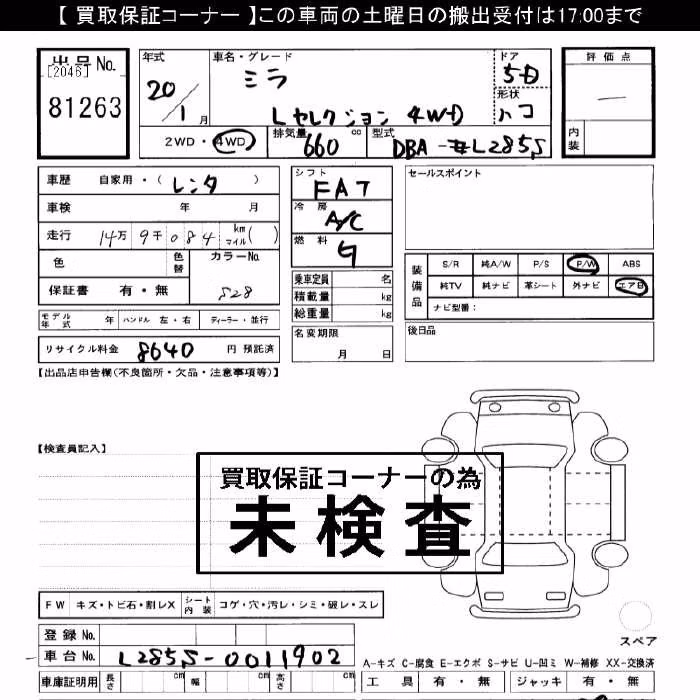 【 買取保証コーナー 】この車両の土曜日の搬出受付は17:00まで
出品No.
[2046]
81263
年式
20/1月
車名・グレード
ミラ
Lセレクション 4WD
ドア
5D
形状
ハコ
評価点
—
内装
2WD・4WD
排気量 660 cc
型式 DBA-#L285S
車歴 自家用・( レンタ )
車検 年 月
走行 14万 9千 084 km マイル( )
色 色替 カラーNo.
保証書 有・無 S28
シフト FAT
冷房 A/C
燃料 G
乗車定員 名
積載量 kg
総重量 kg
名変期限
月 日
セールスポイント
装備品
S/R 純A/W P/S P/W ABS
純TV 純ナビ 革シート 外ナビ エアB
ナビ型番：
後日品
モデル年式 年 ハンドル 左・右 ディーラー・並行
リサイクル料金 8640 円 預託済
【出品店申告欄(不良箇所・欠品・注意事項等)】
【検査員記入】
買取保証コーナーの為
未検査
FW キズ・トビ石・割レX シート内装 コゲ・穴・汚レ・シミ・破レ・スレ
スペア
登録No.
車台No. L285S-0011902
A-キズ C-腐食 E-エクボ S-サビ U-凹ミ W-補修 XX-交換済
車庫証明用 長さ cm 幅 cm 高さ cm
工具 有・無 ジャッキ 有・無